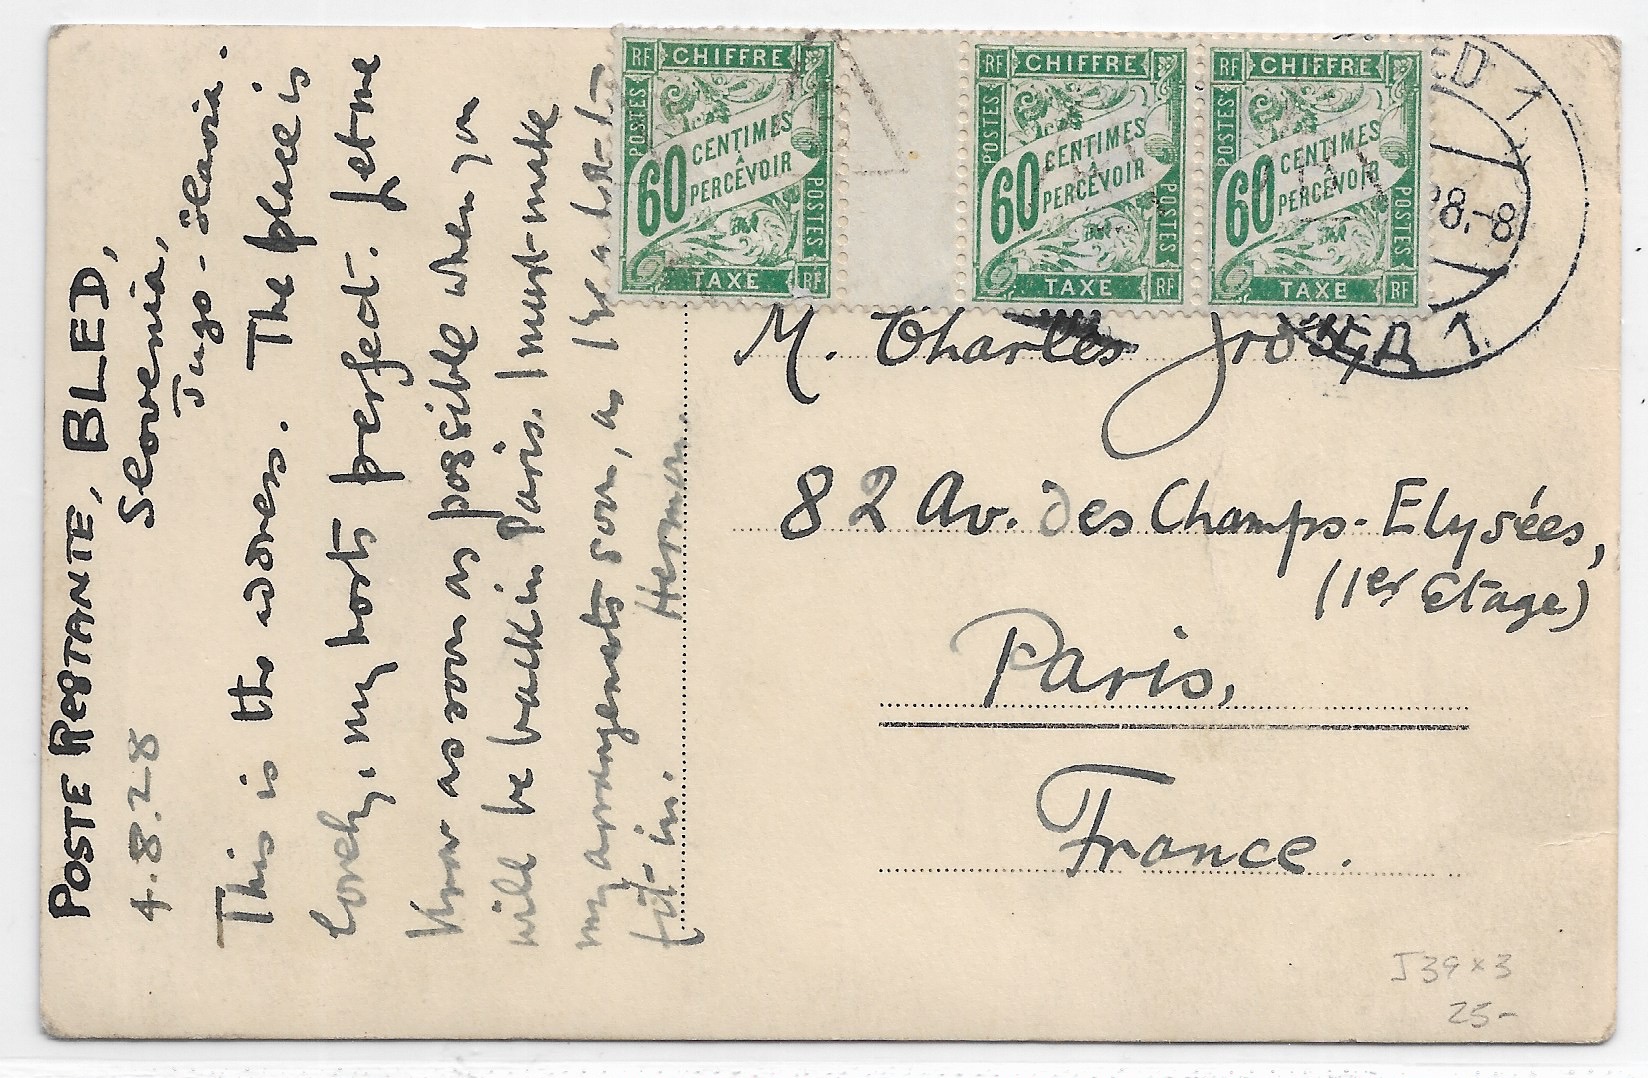 POSTE RESTANTE, BLED,
Slovenia,
Jugo-Slavia.
4.8.28
This is the works. The place is
lovely, my hosts perfect. Let me
know as soon as possible when you
will be back in Paris. I must make
my arrangements soon, as
fit in. Herman
RF CHIFFRE
POSTES
60 CENTIMES
A
PERCEVOIR
POSTES
TAXE RF
RF CHIFFRE
POSTES
60 CENTIMES
A
PERCEVOIR
POSTES
TAXE RF
RF CHIFFRE
POSTES
60 CENTIMES
A
PERCEVOIR
POSTES
TAXE RF
ED 1
28.-8
ЕД 1.
M. Charles
82 Av. des Champs-Elysées,
(1er Etage)
Paris,
France.
J39x3
25-